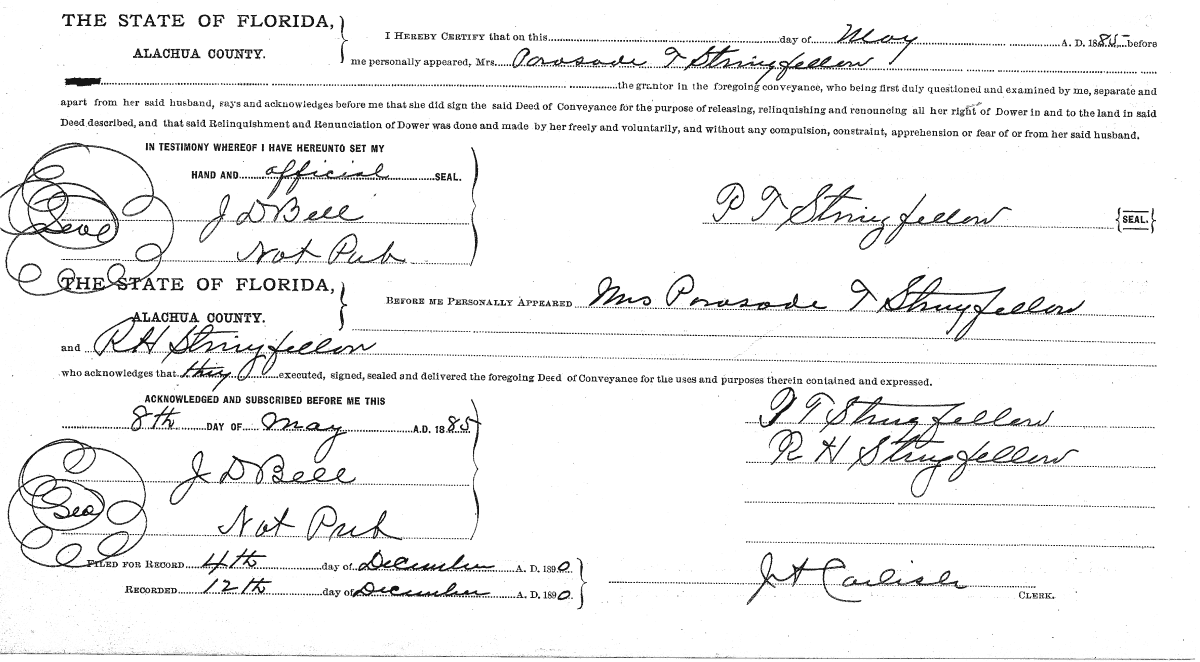 THE STATE OF FLORIDA,
ALACHUA COUNTY.
I HEREBY CERTIFY that on this day of May A. D. 1885 before
me personally appeared, Mrs. T Stringfellow
the grantor in the foregoing conveyance, who being first duly questioned and examined by me, separate and
apart from her said husband, says and acknowledges before me that she did sign the said Deed of Conveyance for the purpose of releasing, relinquishing and renouncing all her right of Dower in and to the land in said
Deed described, and that said Relinquishment and Renunciation of Dower was done and made by her freely and voluntarily, and without any compulsion, constraint, apprehension or fear of or from her said husband.
IN TESTIMONY WHEREOF I HAVE HEREUNTO SET MY
HAND AND official SEAL.
Seal
J D Bell
Not Pub
P T Stringfellow {SEAL.}
THE STATE OF FLORIDA,
ALACHUA COUNTY.
BEFORE ME PERSONALLY APPEARED Mrs T Stringfellow
and R H Stringfellow
who acknowledges that they executed, signed, sealed and delivered the foregoing Deed of Conveyance for the uses and purposes therein contained and expressed.
ACKNOWLEDGED AND SUBSCRIBED BEFORE ME THIS
8th DAY OF May A.D. 1885
Seal
J D Bell
Not Pub
P T Stringfellow
R H Stringfellow
FILED FOR RECORD 4th day of December A. D. 1890.
RECORDED 12th day of December A. D. 1890.
J A Carlisle CLERK.